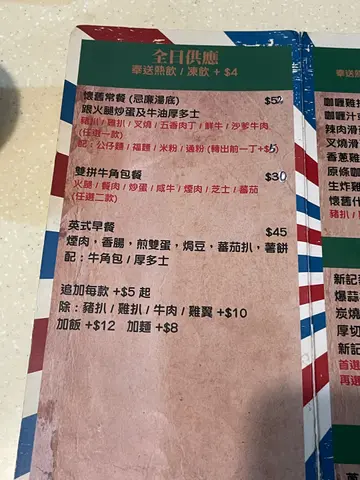 全日供應
奉送熱飲 / 凍飲 + $4
懷舊常餐 (忌廉湯底) $52
跟火腿炒蛋及牛油厚多士
豬扒 / 雞扒 / 叉燒 / 五香肉丁 / 鮮牛 / 沙爹牛肉
(任選一款)
配：公仔麵 / 福麵 / 米粉 / 通粉 (轉出前一丁+$5)
雙拼牛角包餐 $30
火腿 / 餐肉 / 炒蛋 / 咸牛 / 煙肉 / 芝士 / 蕃茄
(任選二款)
英式早餐 $45
煙肉，香腸，煎雙蛋，焗豆，蕃茄扒，薯餅
配：牛角包 / 厚多士
追加每款 +$5 起
除：豬扒 / 雞扒 / 牛肉 / 雞翼 +$10
加飯 +$12 加麵 +$8
奉送熱
咖喱雞
咖喱汁
辣肉滑
叉燒滑
香蔥
原條咖
生炸雞
懷舊什
豬扒 /
新記
爆蒜
炭燒
厚切
新記
首選
再選